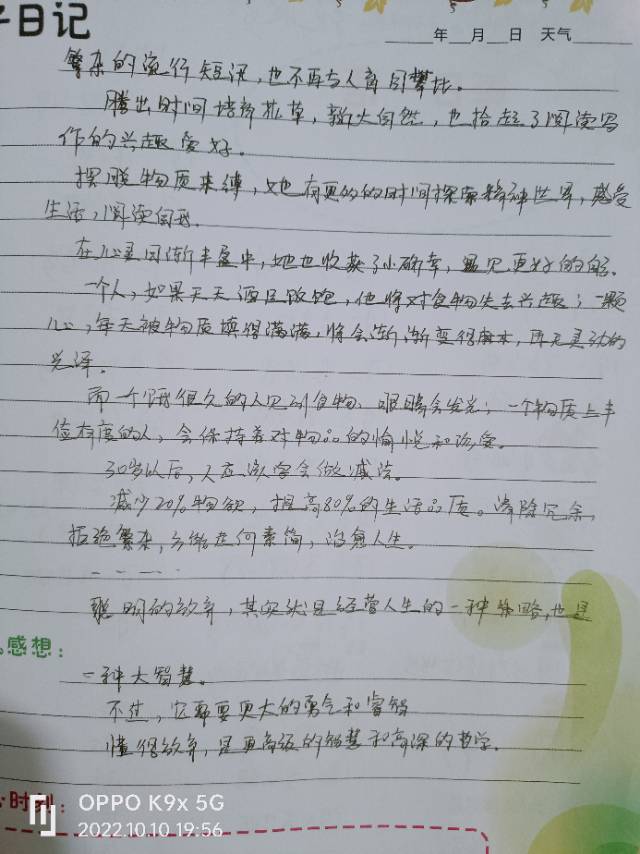 子日记
年 月 日 天气
繁杂的流行短讯，也不再与人盲目攀比。
腾出时间培养花草，亲近大自然，也拾起了阅读写
作的兴趣爱好。
摆脱物质束缚，她也有更多的时间探索精神世界，感受
生活，阅读自我。
在心灵日渐丰盈中，她也收获了小确幸，遇见更好的自己。
一个人，如果天天酒足饭饱，他将对食物失去兴趣；一颗
心，每天被物质填得满满，将会渐渐变得麻木，再无灵动的
光泽。
而一个饿很久的人见到食物，眼睛会发光；一个物质上丰
俭有度的人，会保持着对物品的愉悦和珍爱。
30岁以后，人应该学会做减法。
减少20%物欲，提高80%的生活品质。清除冗余，
拒绝繁杂，方能在何素简，治愈人生。
－－－－
聪明的放弃，其实就是经营人生的一种策略，也是
感想：
一种大智慧。
不过，它需要更大的勇气和睿智
懂得放弃，是更高级的智慧和高深的哲学。
时刻：
OPPO K9x 5G
2022.10.10 19:56